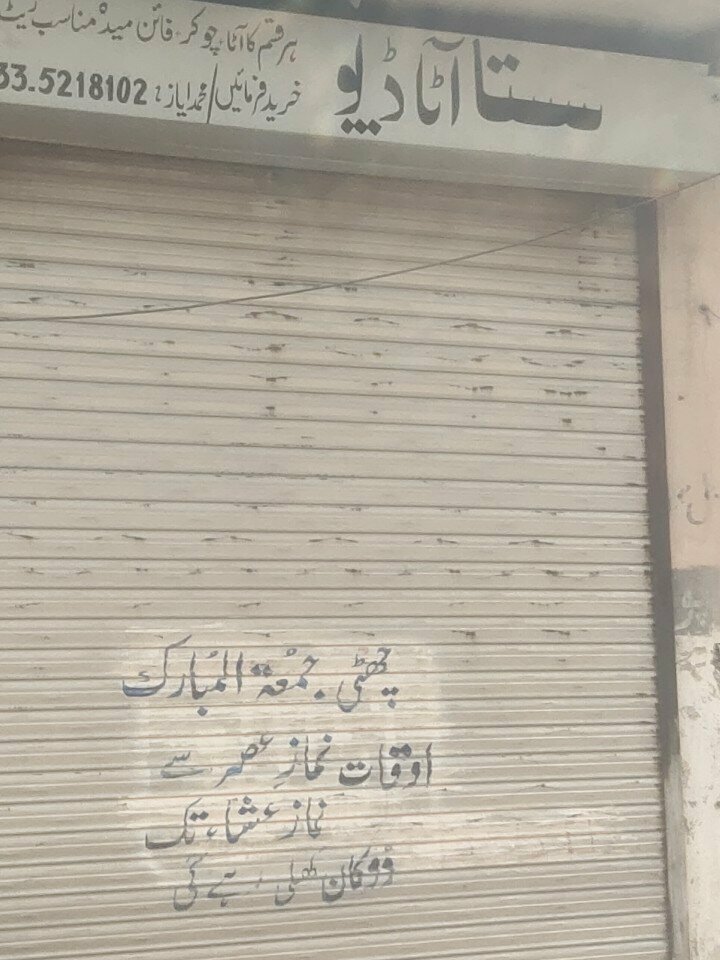 سستا آٹا ڈپو
ہر قسم کا آٹا، چوکر، فائن میدہ مناسب ریٹ
خرید فرمائیں/محمد ایاز: 33.5218102
چھٹی جمعۃ المبارک
اوقات نمازِ عصر سے
نماز عشاء تک
دوکان کھلی رہے گی